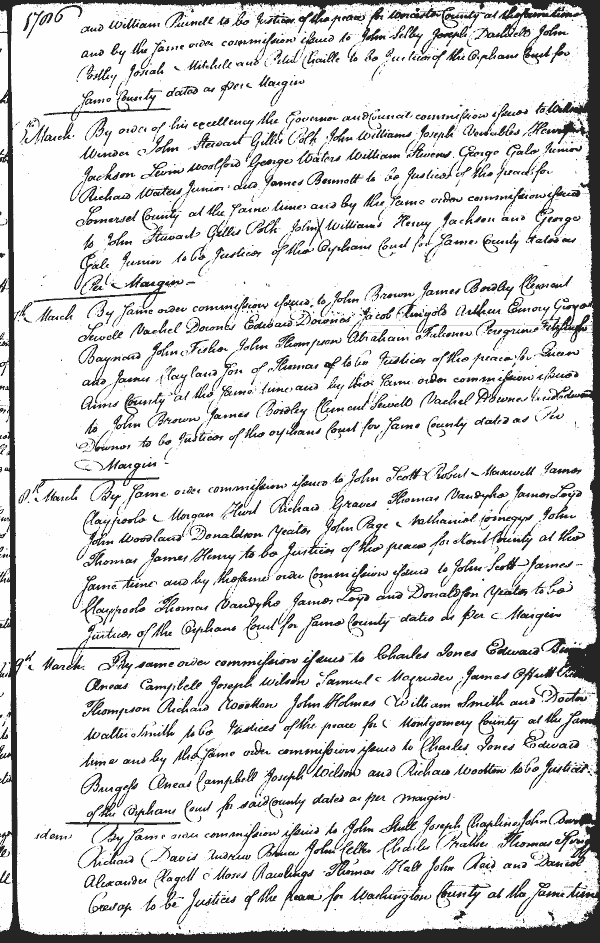 1786 and William Purnell to be Justices of the peace for Worcester County at the same time
and by the same order commission issued to John Selby Joseph Dashiell John
Postley Josiah Mitchell and Peter Chaille to be Justices of the Orphans Court for
same County dated as per Margin
March By order of his excellency the Governor and Council commission issued to William
Winder John Stewart Gillis Polk John Williams Joseph Venables Henry
Jackson Levin Woolford George Waters William Stevens George Gale Junior
Richard Waters Junior and James Bennett to be Justices of the peace for
Somerset County at the same time and by the same order commission issued
to John Stewart Gillis Polk John Williams Henry Jackson and George
Gale Junior to be Justices of the Orphans Court for same County dated as
Per Margin
March By same order commission issued to John Brown James Bordley Clement
Sewell Vachel Downes Edward Downes Jacob Ringold Arthur Emory
Baynard John Fisher John Thompson Abraham Falconer Peregrine Fitzhugh
and James Clayland son of Thomas to be Justices of the peace for Queen
Anns County at the same time and by the same order commission issued
to John Brown James Bordley Clement Sewell Vachel Downes and Edward
Downes to be Justices of the orphans Court for same County dated as Per
Margin
8th March By same order commission issued to John Scott Robert Maxwell James
Claypoole Morgan Hurt Richard Graves Thomas Vandyke James Loyd
John Woodland Donaldson Yeates John Page Nathaniel Comegys John
Thomas James Henry to be Justices of the peace for Kent County at the
same time and by the same order commission issued to John Scott James
Claypoole Thomas Vandyke James Loyd and Donaldson Yeates to be
Justices of the Orphans Court for same County dated as per Margin
9th March By same order commission issued to Charles Jones Edward
Aneas Campbell Joseph Wilson Samuel Magruder James Offutt
Thompson Richard Wootton John Holmes William Smith and Doctor
Walter Smith to be Justices of the peace for Montgomery County at the same
time and by the same order commission issued to Charles Jones Edward
Burgess Aneas Campbell Joseph Wilson and Richard Wootton to be Justices
of the Orphans Court for said County dated as per margin
idem By same order commission issued to John Stull Joseph Chapline John
Richard Davis Andrew Bruce John Cellers Charles Prather Thomas Sprigg
Alexander Clagett Moses Rawlings Thomas Hall John Reid and Daniel
Cresap to be Justices of the peace for Washington County at the same time